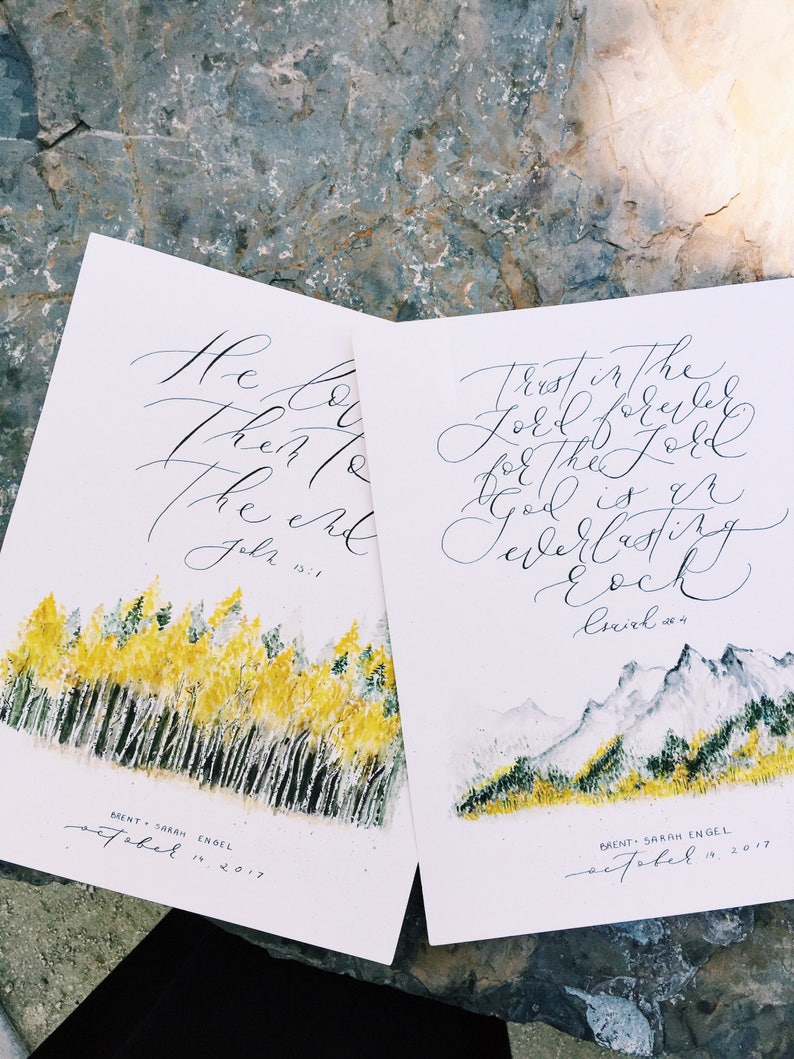 He lo
Them to
The end
John 13:1
BRENT + SARAH ENGEL
october 14. 2017
Trust in The
Lord forever
for The Lord
God is an
everlasting
Rock
Isaiah 26:4
BRENT + SARAH ENGEL
october 14. 2017